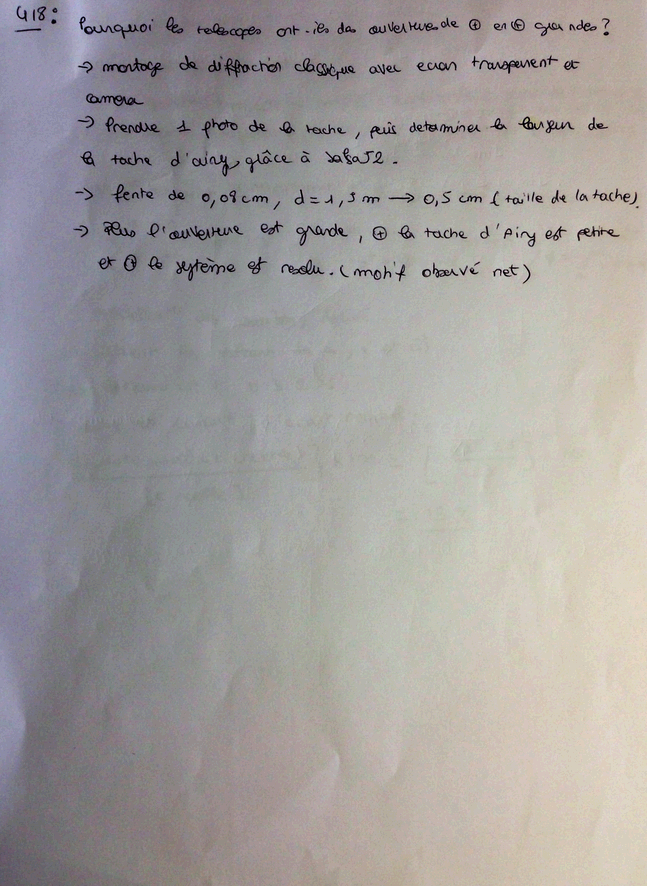 418: Pourquoi les telescopes ont-ils des ouvertures de ⊕ en ⊕ grandes ?
→ montage de diffraction classique avec ecran transparent et
camera
→ Prendre 1 photo de la tache, puis determiner la largeur de
la tache d'airy grâce à
→ fente de 0,08 cm, d = 1,3 m → 0,5 cm (taille de la tache)
→ Plus l'ouverture est grande, ⊕ la tache d'Airy est petite
et ⊕ le système est resolu. (motif observé net)